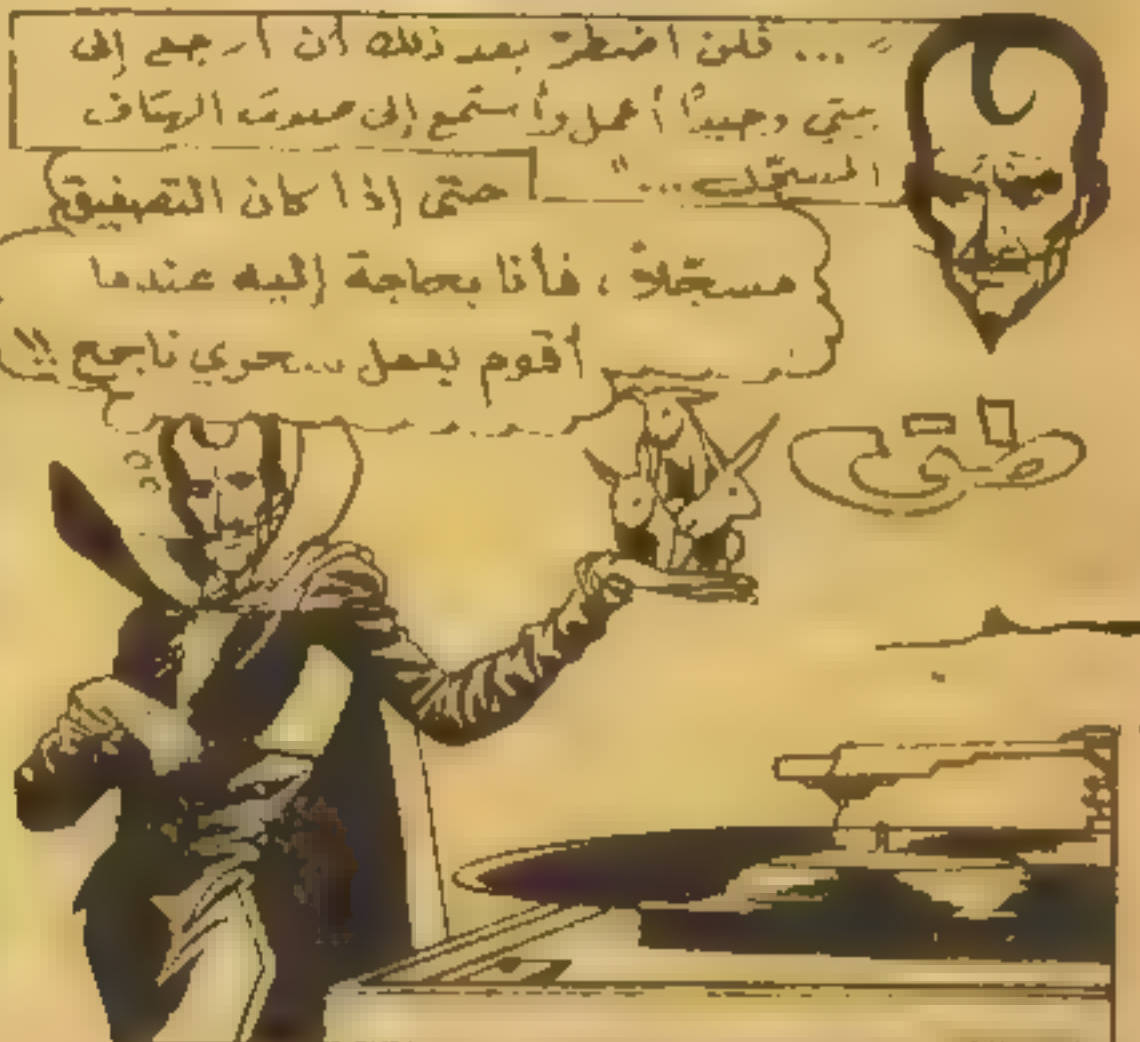 "... فلن أضطرّ بعد ذلك أن أرجع إلى
بيتي وحيدًا أعمل وأستمع إلى صوت الهتاف
المسجّل..."
حتى إذا كان التصفيق
مسجّلاً، فأنا بحاجة إليه عندما
أقوم بعمل سحري ناجح!!